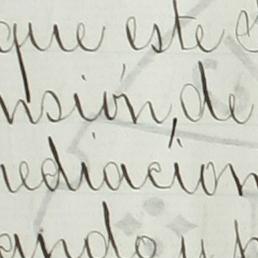 que este
nsión, de
ediación
ando y p